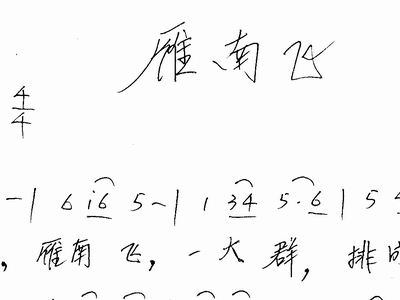 雁南飞
4
4
-| 6 i6 5-| 1 34 5·6 | 5
，雁南飞，一大群，排成